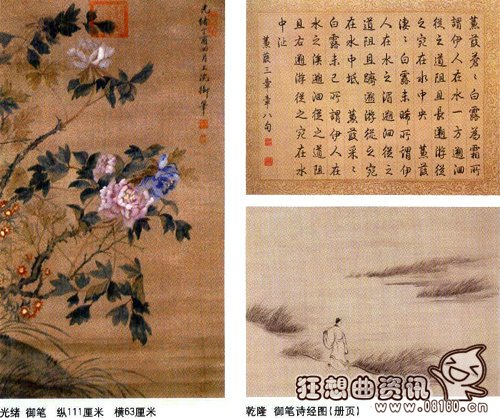 光緒丁酉四月上浣御筆
蒹葭蒼〻白露為霜所
謂伊人在水一方遡洄
從之道阻且長遡游從
之宛在水中央 蒹葭
淒〻白露未晞所謂伊
人在水之湄遡洄從之
道阻且躋遡游從之宛
在水中坻 蒹葭采〻
白露未已所謂伊人在
水之涘遡洄從之道阻
且右遡游從之宛在水
中沚
蒹葭三章章八句
光绪 御笔 纵111厘米 横63厘米
乾隆 御笔诗经图(册页)
狂想曲资讯
www.08160.cn